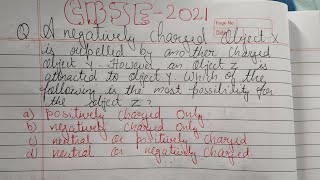 CBSE-2021
Page No.
Date
Q A negatively charged object X
is repelled by another charged
object Y. However an object Z is
attracted to object Y. Which of the
following is the most possibility for
the object Z?
a) positively charged only
b) negatively charged only
c) neutral or positively charged
d) neutral or negatively charged